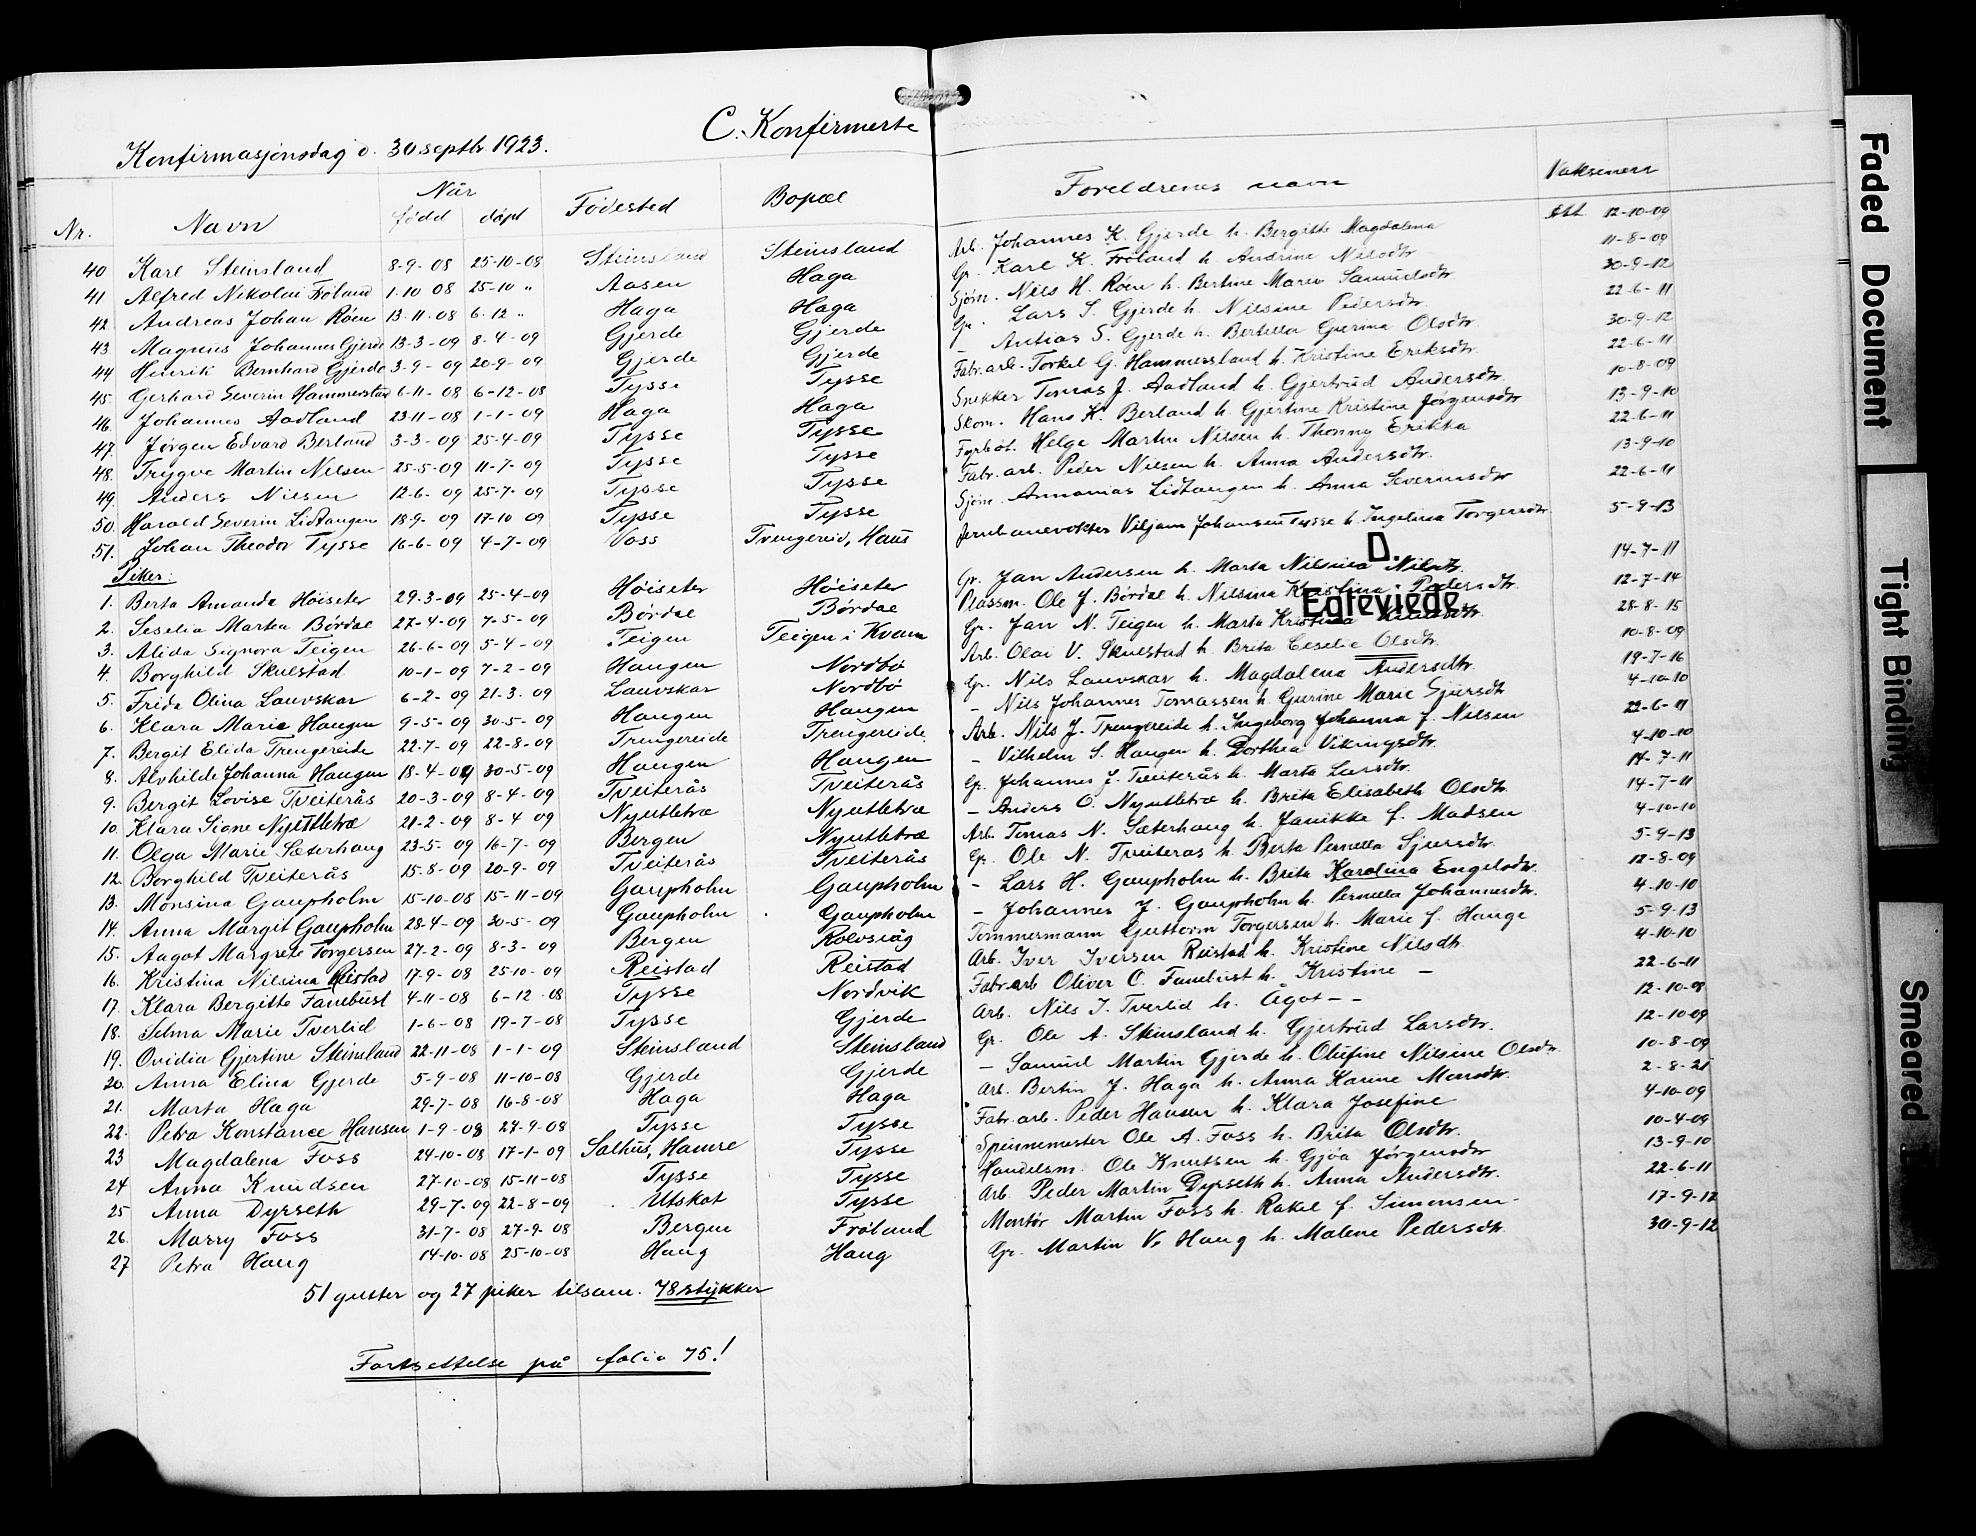 C. Konfirmerte
Konfirmasjonsdag d. 30 septbr 1923.
Nr. Navn Når født døpt Fødested Bopæl Foreldrenes navn Vaksinert
40 Karl Steinsland 8-9-08 25-10-08 Steinsland Steinsland Arb. Johannes K. Gjerde h. Bergitte Magdalena att 12-10-09
41 Alfred Nikolai Frøland 1-10 08 25-10 " Aasen Haga Gr. Karl K. Frøland h. Andrine Nilsdtr 11-8-09
42 Andreas Johan Røen 13-11-08 6-12 " Haga Haga Sjøm. Nils H. Røen h. Bertine Maria Samuelsdtr 30-9-12
43 Magnus Johannes Gjerde 13-3-09 8-4-09 Gjerde Gjerde Gr. Lars S. Gjerde h. Nilsine Pedersdtr 22-6-11
44 Henrik Bernhard Gjerde 3-9-09 20-9-09 Gjerde Gjerde - Antias S. Gjerde h. Bertella Gurina Olsdtr 30-9-12
45. Gerhard Severin Hammersland 6-11-08 6-12-08 Tysse Tysse Fabr. arb. Torkel G. Hammersland h. Kristine Eriksdtr 22-6-11
46. Johannes Aadland 23-11-08 1-1-09 Haga Haga Snekker Tomas J. Aadland h. Gjertrud Andersdtr 10-8-09
47. Jørgen Edvard Berland 3-3-09 25-4-09 Tysse Tysse Skom. Hans K. Berland h. Gjertine Kristine Jørgensdtr 13-9-10
48. Trygve Martin Nilsen 25-5-09 11-7-09 Tysse Tysse Fyrbøt. Helge Martin Nilsen h. Thonny Erikka 22-6-11
49. Anders Nilsen 12-6-09 25-7-09 Tysse Tysse Fabr. arb. Peder Nilsen h. Anna Andersdtr. 13-9-10
50. Harald Severin Lidtangen 18-9-09 17-10 09 Tysse Tysse Sjøm. Annanias Lidtangen h. Anna Severinsdtr 22-6-11
51. Johan Theodor Tysse 16-6-09 4-7-09 Voss Trengereid, Haus Jernbanevokter Viljam Johansen Tysse h. Ingelina Torgersdtr 5-9-13
D.
Egteviede
Piker:
1. Berta Amanda Høiseter 29-3-09 25-4-09 Høiseter Høiseter Gr. Jan Andersen h. Marta Nilsina Nilsdtr. 14-7-11
2. Seselia Marta Børdal 27-4-09 7-5-09 Børdal Børdal Plassm. Ole J. Børdal h. Nilsina Kristina Pedersdtr. 12-7-14
3. Alida Signora Teigen 26-6-09 5-4-09 Teigen Teigen i Kvam Gr. Jan N. Teigen h. Marta Kristina 28-8-15
4. Borghild Skulstad 10-1-09 7-2-09 Haugen Nordbø Arb. Olai V. Skulstad h. Brita Ceselie Olsdtr. 10-8-09
5. Frida Olina Lauvskar 6-2-09 21-3-09 Lauvskar Nordbø Gr. Nils Lauvskar h. Magdalena Andersdtr. 19-7-16
6. Klara Maria Haugen 9-5-09 30-5-09 Haugen Haugen - Nils Johannes Tomassen h. Gurine Marie Sjursdtr 4-10-10
7. Bergit Elida Trengereide 22-7-09 22-8-09 Trengereide Trengereide Arb. Nils J. Trengereide h. Ingeborg Johanna f. Nilsen 22-6-11
8. Alvhilde Johanna Haugen 18-4-09 30-5-09 Haugen Haugen - Vilhelm S. Haugen h. Dorthea Vikingsdtr. 4-10-10
9. Bergit Lovise Tveiterås 20-3-09 8-4-09 Tveiterås Tveiterås Gr. Johannes J. Tveiterås h. Marta Larsdtr. 14-7-11
10. Klara Sione Nyutletræ 21-2-09 8-4 09 Nyutletræ Nyutletræ - Anders O. Nyutletræ h. Brita Elisabeth Olsdtr. 14-7-11
11. Olga Marie Sæterhaug 23-5-09 16-7-09 Bergen Nyutletræ Arb. Tomas N. Sæterhaug h. Janikke f. Madsen 4-10-10
12. Borghild Tveiterås 15-8-09 20-9-09 Tveiterås Tveiterås Gr. Ole N. Tveiteras h. Berta Pernella Sjursdtr. 5-9-13
13. Monsina Gaupholm 15-10-08 15-11-09 Gaupholm Gaupholm - Lars H. Gaupholm h. Brita Karolina Engelsdtr. 12-8-09
14. Anna Margit Gaupholm 28-4-09 30-5-09 Gaupholm Gaupholm - Johannes J. Gaupholm h. Pernella Johannesdtr. 4-10-10
15. Aagot Margrete Torgersen 27-2-09 8-3-09 Bergen Rolvsåg Tømmermann Guttorm Torgersen h. Marie f. Hauge 5-9-13
16. Kristina Nilsina Reistad 17-9-08 25-10-09 Reistad Reistad Arb. Iver Iversen Reistad h. Kristine Nilsdtr. 4-10-10
17. Klara Bergitte Tanebust 4-11-08 6-12-08 Tysse Nordvik Fabr. arb. Oliver O. Tanebust h. Kristine - 22-6-11
18. Selma Marie Tverlid 1-6-08 19-7-08 Tysse Gjerde Arb. Nils I. Tverlid h. Ågot - - 12-10-08
19. Ovidia Gjertine Steinsland 22-11-08 1-1-09 Steinsland Steinsland Gr. Ole A. Steinsland h. Gjertrud Larsdtr. 12-10-09
20. Anna Elina Gjerde 5-9-08 11-10-08 Gjerde Gjerde - Samuel Martin Gjerde h. Olufine Nilsine Olsdtr. 10-8-09
21. Marta Haga 29-7-08 16-8-08 Haga Haga Arb. Bertin J. Haga h. Anna Karine Monsdtr. 2-8-21
22. Petra Konstance Hansen 1-9-08 27-9-08 Tysse Tysse Fabr. arb. Peder Hansen h. Klara Josefine 4-10-09
23 Magdalena Foss 24-10-08 17-1-09 Salhus, Hamre Tysse Spinnemester Ole A. Foss h. Brita Olsdtr. 10-4-09
24 Anna Knudsen 27-10-08 15-11-08 Tysse Tysse Handelsm. Ole Knutsen h. Gjøa Jørgensdtr 13-9-10
25 Anna Dyrseth 29-7-09 22-8-09 Utskot Tysse Arb. Peder Martin Dyrseth h. Anna Andersdtr. 22-6-11
26. Marry Foss 31-7-08 27-9-08 Bergen Frøland Montør Martin Foss h. Rakel f. Simonsen - 17-9-12
27 Petra Haug 14-10-08 25-10-08 Haug Haug Gr. Martin V. Haug h. Malene Pedersdtr. 30-9-12
51 gutter og 27 piker tilsam. 78 stykker
Fortsettelse på folio 75!
Faded Document
Tight Binding
Smeared